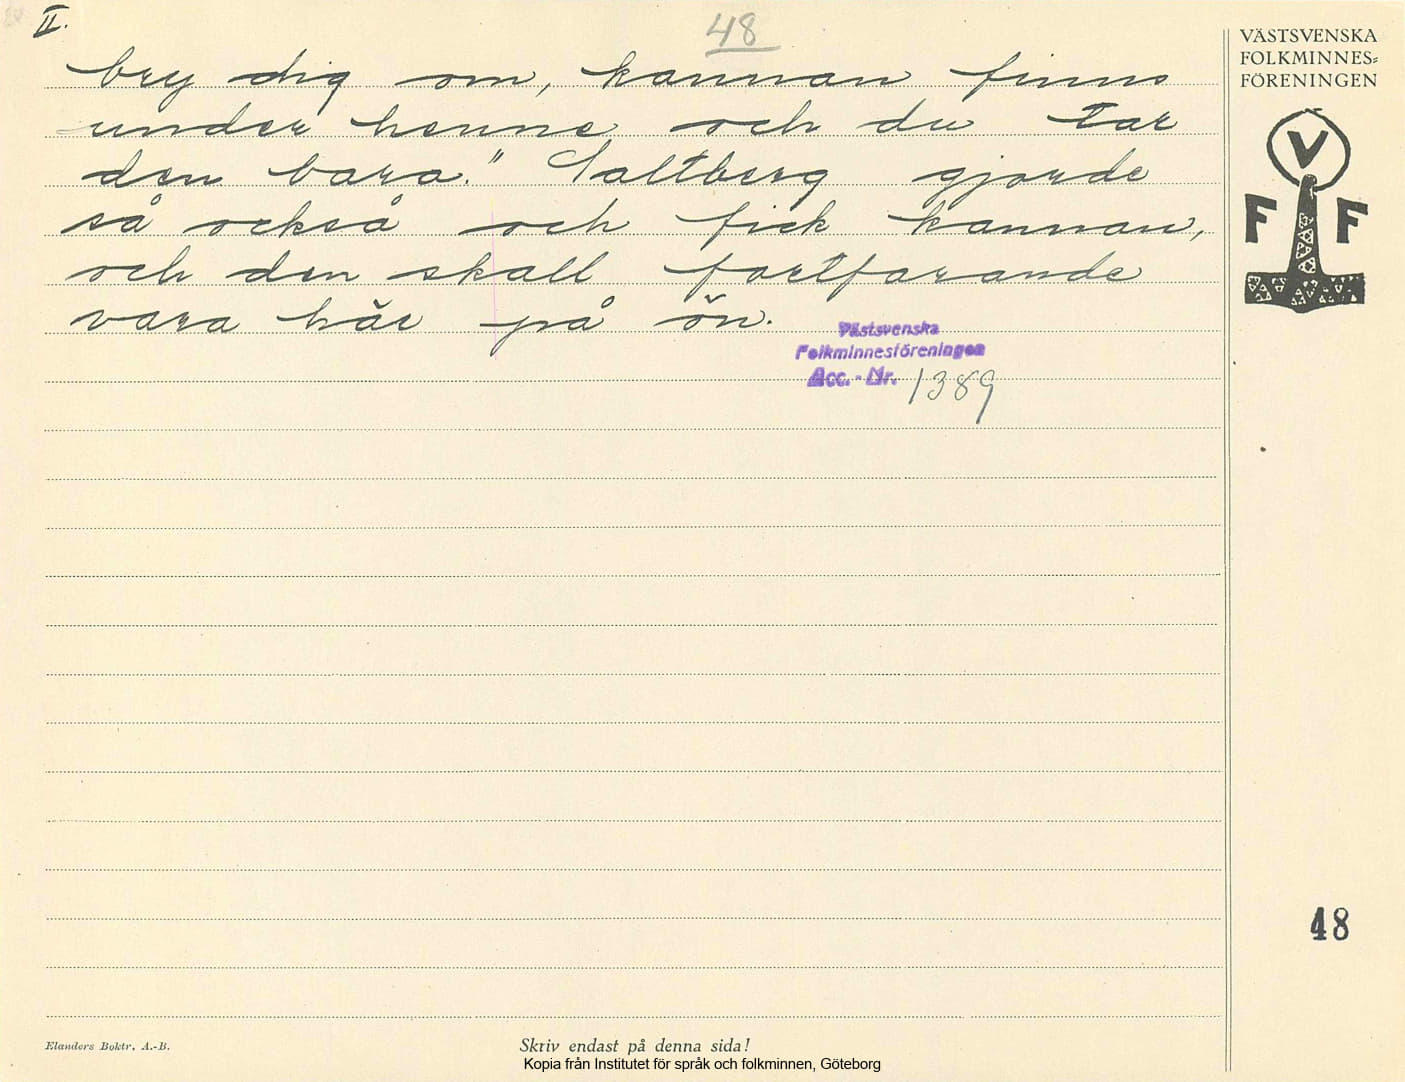 II.
48
bry dig om, kannan finns
under henne och du tar
den bara." Saltberg gjorde
så också och fick kannan,
och den skall fortfarande
vara här på ön.
Västsvenska
Folkminnesföreningen
Acc. - Nr. 1389
VÄSTSVENSKA
FOLKMINNES=
FÖRENINGEN
V
F F
48
Elanders Boktr. A.-B.
Skriv endast på denna sida!
Kopia från Institutet för språk och folkminnen, Göteborg